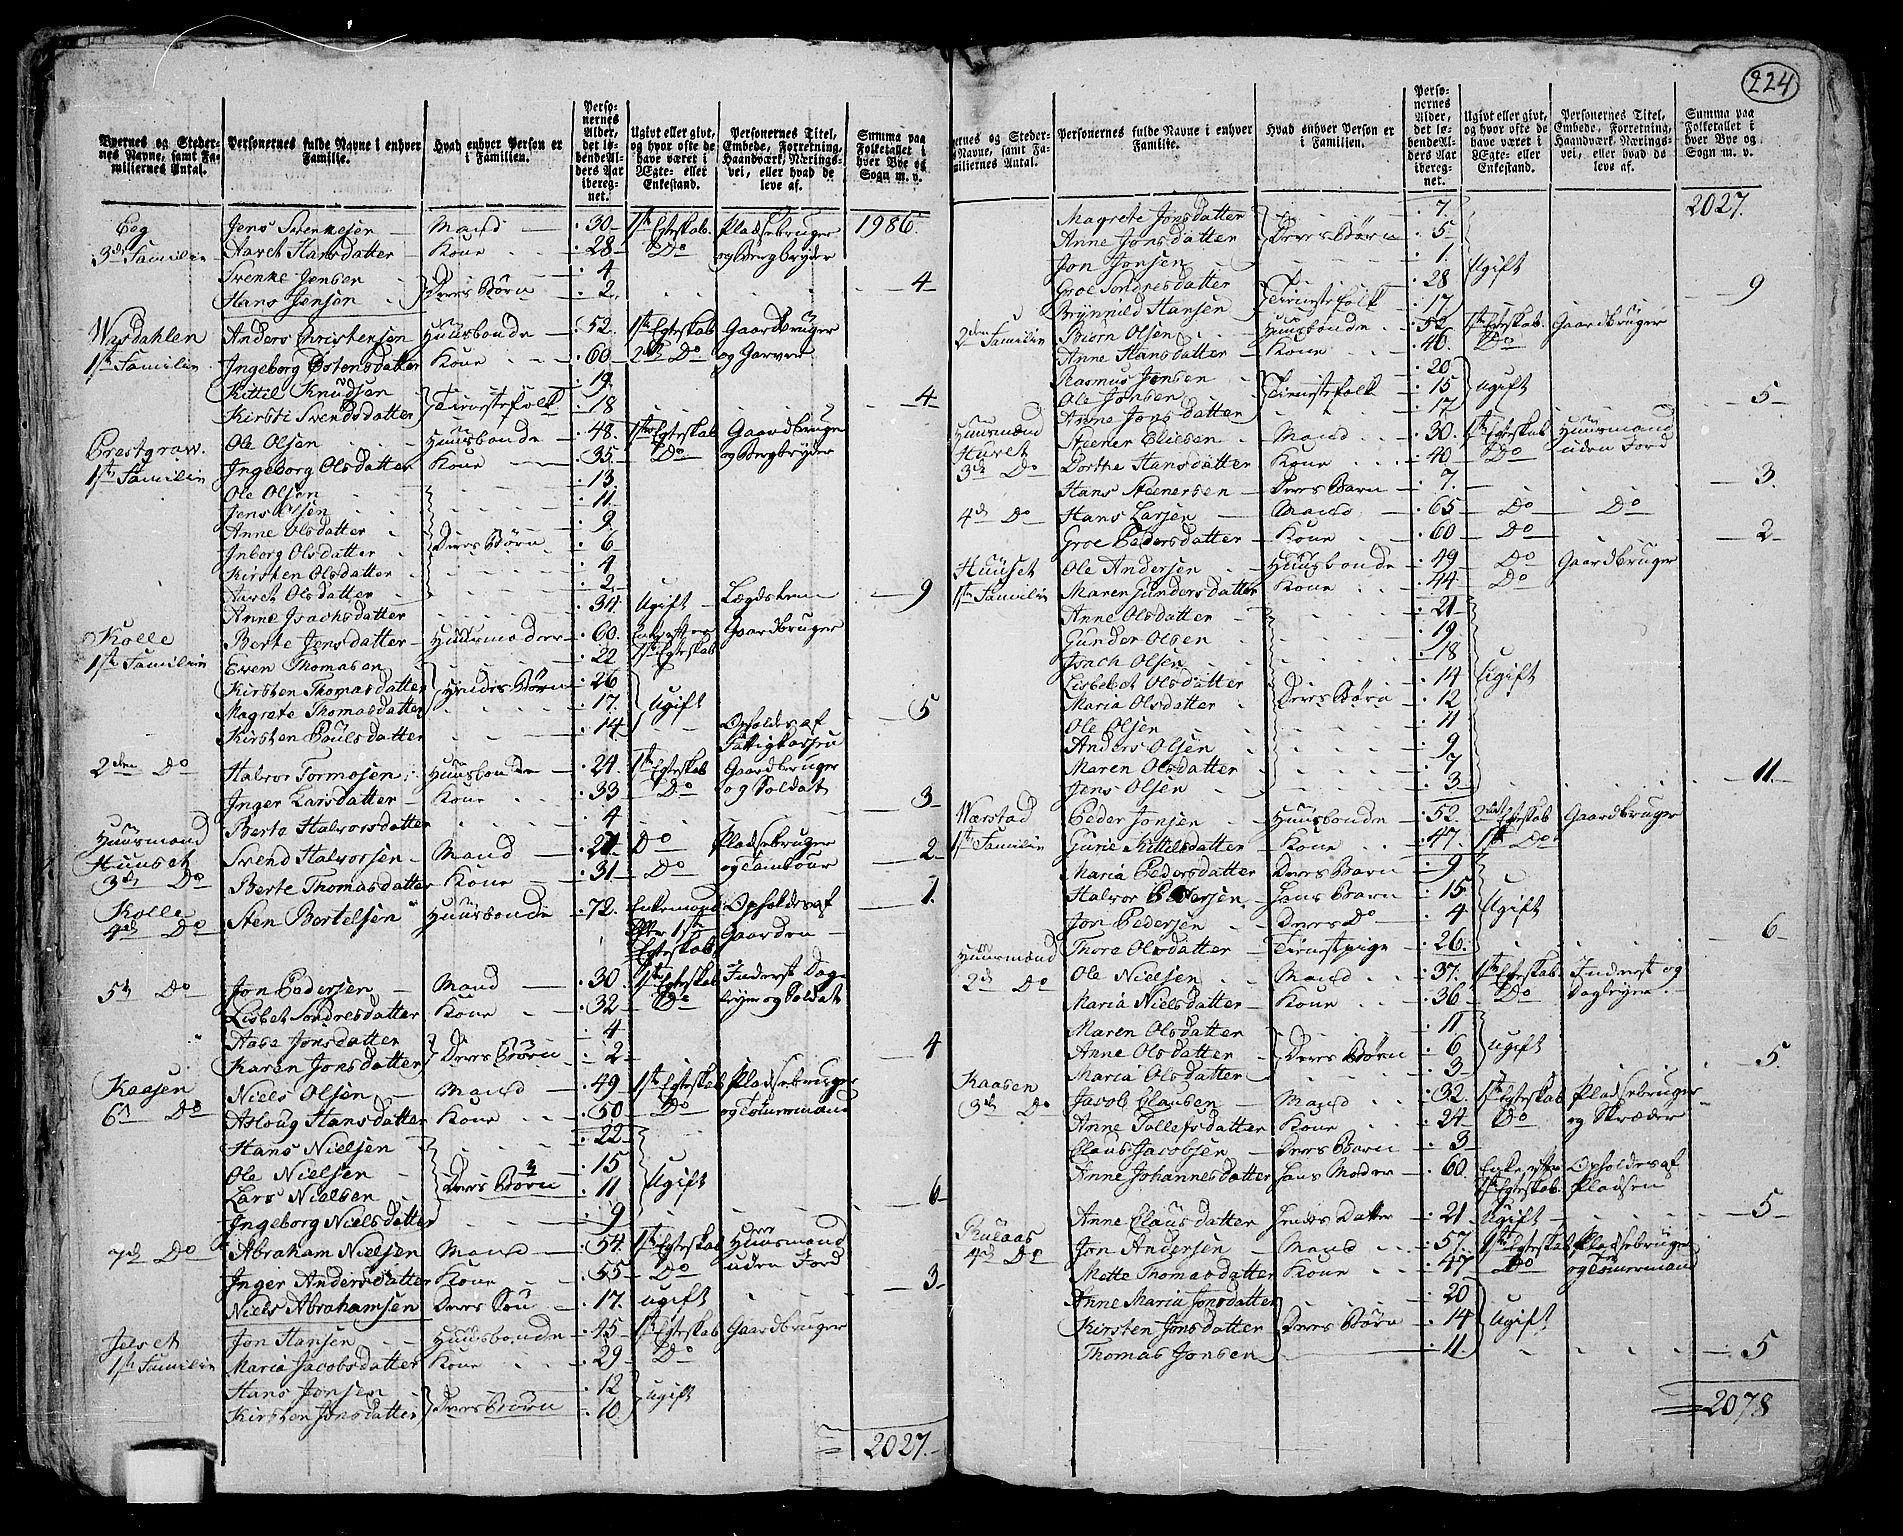 224
Byernes og Steder-
nes Navne, samt Fa-
miliernes Antal.
Personernes fulde Navne i enhver
Familie.
Hvad enhver Person er
i Familien.
Perso-
nernes
Alder,
det lø-
bende Al-
ders Aar
ibereg-
net.
Ugivt eller givt,
og hvor ofte de
have været i
Ægte- eller
Enkestand.
Personernes Titel,
Embede, Forretning,
Haandværk, Nærings-
vei, eller hvad de
leve af.
Summa paa
Folketallet i
hver Bye og
Sogn m. v.
Eeg Jens Svenkesen Mand 30 1ste Egteskab Pladsebruger 1986
3de Familie Aaret Hansdatter Kone 28 Do og Bergbryder
Svenke Jensen 4
Hans Jensen Deres Børn 2 4
Wasdahlen Anders Christensen Huusbonde 52 1ste Egteskab Gaardbruger
1ste Familie Ingeborg Østensdatter Kone 60 2det Do og Garver
Kittil Knudsen 19
Kirsti Svendsdatter Tienistefolk 18 4
Prestgrav. Ole Olsen Huusbonde 48 1ste Egteskab Gaardbruger
1ste Familie Ingeborg Olsdatter Kone 35 Do og Bergbryder
Ole Olsen 13
Jens Olsen 11
Anne Olsdatter 9
Inborg Olsdatter Deres Børn 6
Kirsten Olsdatter 4
Aaret Olsdatter 2
Anne Isachsdatter 34 Ugift Lægdslem 9
Kolle Berte Jensdatter Huusmoder 60 Enke efter Gaardbruger
1ste Familie Even Thomasen 22 1ste Egteskab
Kirsten Thomasdatter Hendes Børn 26
Magrete Thomasdatter 17 Ugift 5
Kirsten Poulsdatter 14 Opholdes af
Fattigkassen
2den Do Halvor Tormosen Huusbonde 24 1ste Egteskab Gaardbruger
Inger Larsdatter Kone 33 Do og Soldat 3
Berte Halvorsdatter 4
Huusmand
Huuset Svend Halvorsen Mand 21 Do Pladsebruger 2
3de Do Berte Thomasdatter Kone 31 Do og Tambour
Kolle
4de Do Sten Bertelsen Huusbonde 72 Enkemand Opholdes af 1
efter 1ste Gaarden
Egteskab
5te Do Jon Pedersen Mand 30 1ste Egteskab Inderst Dag-
Lisbet Sondresdatter Kone 32 Do leyer og Soldat
Aase Jonsdatter 4
Karen Jonsdatter Deres Børn 2 4
Kaasen Niels Olsen Mand 49 1ste Egteskab Pladsebruger
6te Do Asloug Hansdatter Kone 50 Do og Tømermand
Hans Nielsen 22
Ole Nielsen 15
Lars Nielsen Deres Børn 11 Ugift 6
Ingeborg Nielsdatter 9
7de Do Abraham Nielsen Mand 54 1ste Egteskab Huusmand
Inger Andersdatter Kone 55 Do uden Jord 3
Niels Abrahamsen Deres Søn 17 ugift
Jelset Jon Hansen Huusbonde 45 1ste Egteskab Gaardbruger
1ste Familie Maria Jacobsdatter Kone 29 Do
Hans Jonsen 12
Kirsten Jonsdatter Deres Børn 10 ugift
2027
ernes og Steder-
s Navne, samt Fa-
miliernes Antal.
Personernes fulde Navne i enhver
Familie.
Hvad enhver Person er
i Familien.
Perso-
nernes
Alder,
det lø-
bende Al-
ders Aar
ibereg-
net.
Ugivt eller givt,
og hvor ofte de
have været i
Ægte- eller
Enkestand.
Personernes Titel,
Embede, Forretning,
Haandværk, Nærings-
vei, eller hvad de
leve af.
Summa paa
Folketallet i
hver Bye og
Sogn m. v.
Magrete Jonsdatter 7 2027
Anne Jonsdatter Deres Børn 5
Jon Jonsen 1
Groe Sondresdatter 28 Ugift
Brynnild Hansen Tienistefolk 17 9
2den Familie Biørn Olsen Huusbonde 52 1ste Egteskab Gaardbruger
Anne Hansdatter Kone 46 Do
Rasmus Jensen 20
Ole Jonsen Tienistefolk 15 ugift 5
Anne Jonsdatter 17
Huusmand
Huset Steener Eliesen Mand 30 1ste Egteskab Huusmand
3de Do Dorthe Hansdatter Kone 40 Do uden Jord
Hans Steenersen Deres Barn 7 3
4de Do Hans Larsen Mand 65 Do Do
Groe Pedersdatter Kone 60 Do 2
Huuset Ole Andersen Huusbonde 49 Do Gaardbruger
1ste Familie Maren Gundersdatter Kone 44 Do
Anne Olsdatter 21
Gunder Olsen 19
Isach Olsen 18
Lisbebet Olsdatter 14 Ugift
Maria Olsdatter Deres Børn 12
Ole Olsen 11
Anders Olsen 9
Maren Olsdatter 7
Jens Olsen 3 11
Wærstad Peder Jonsen Huusbonde 52 2det Egteskab Gaardbruger
1ste Familie Gurie Kittilsdatter Kone 47 1ste Do
Maria Pedersdatter Deres Barn 9
Halvor Pedersen Hans Barn 15
Jon Pedersen Deres Do 4 Ugift
Thore Olsdatter Tienistpige 26 6
Huusmand
2de Do Ole Nielsen Mand 37 1ste Egteskab Inderst og
Maria Nielsdatter Kone 36 Do Dagleyer
Maren Olsdatter 11
Anne Olsdatter Deres Børn 6 ugift 5
Maria Olsdatter 3
Kaasen
3de Do Jacob Clausen Mand 32 1ste Egteskab Pladsebruger
Anne Tollefsdatter Kone 24 Do og Skræder
Claus Jacobsen Deres Barn 3
Anne Johannesdatter Hans Moder 60 Enke efter Opholdes af
1ste Egteskab Pladsen
Anne Clausdatter Hendes Datter 21 Ugift 5
Rulaas Jon Andersen Mand 57 1ste Egteskab Pladsebruger
4de Do Mette Thomasdatter Kone 47 Do og Tømermand
Anne Maria Jonsdatter 20
Kirsten Jonsdatter Deres Børn 14 Ugift
Thomas Jonsen 11 5
2078